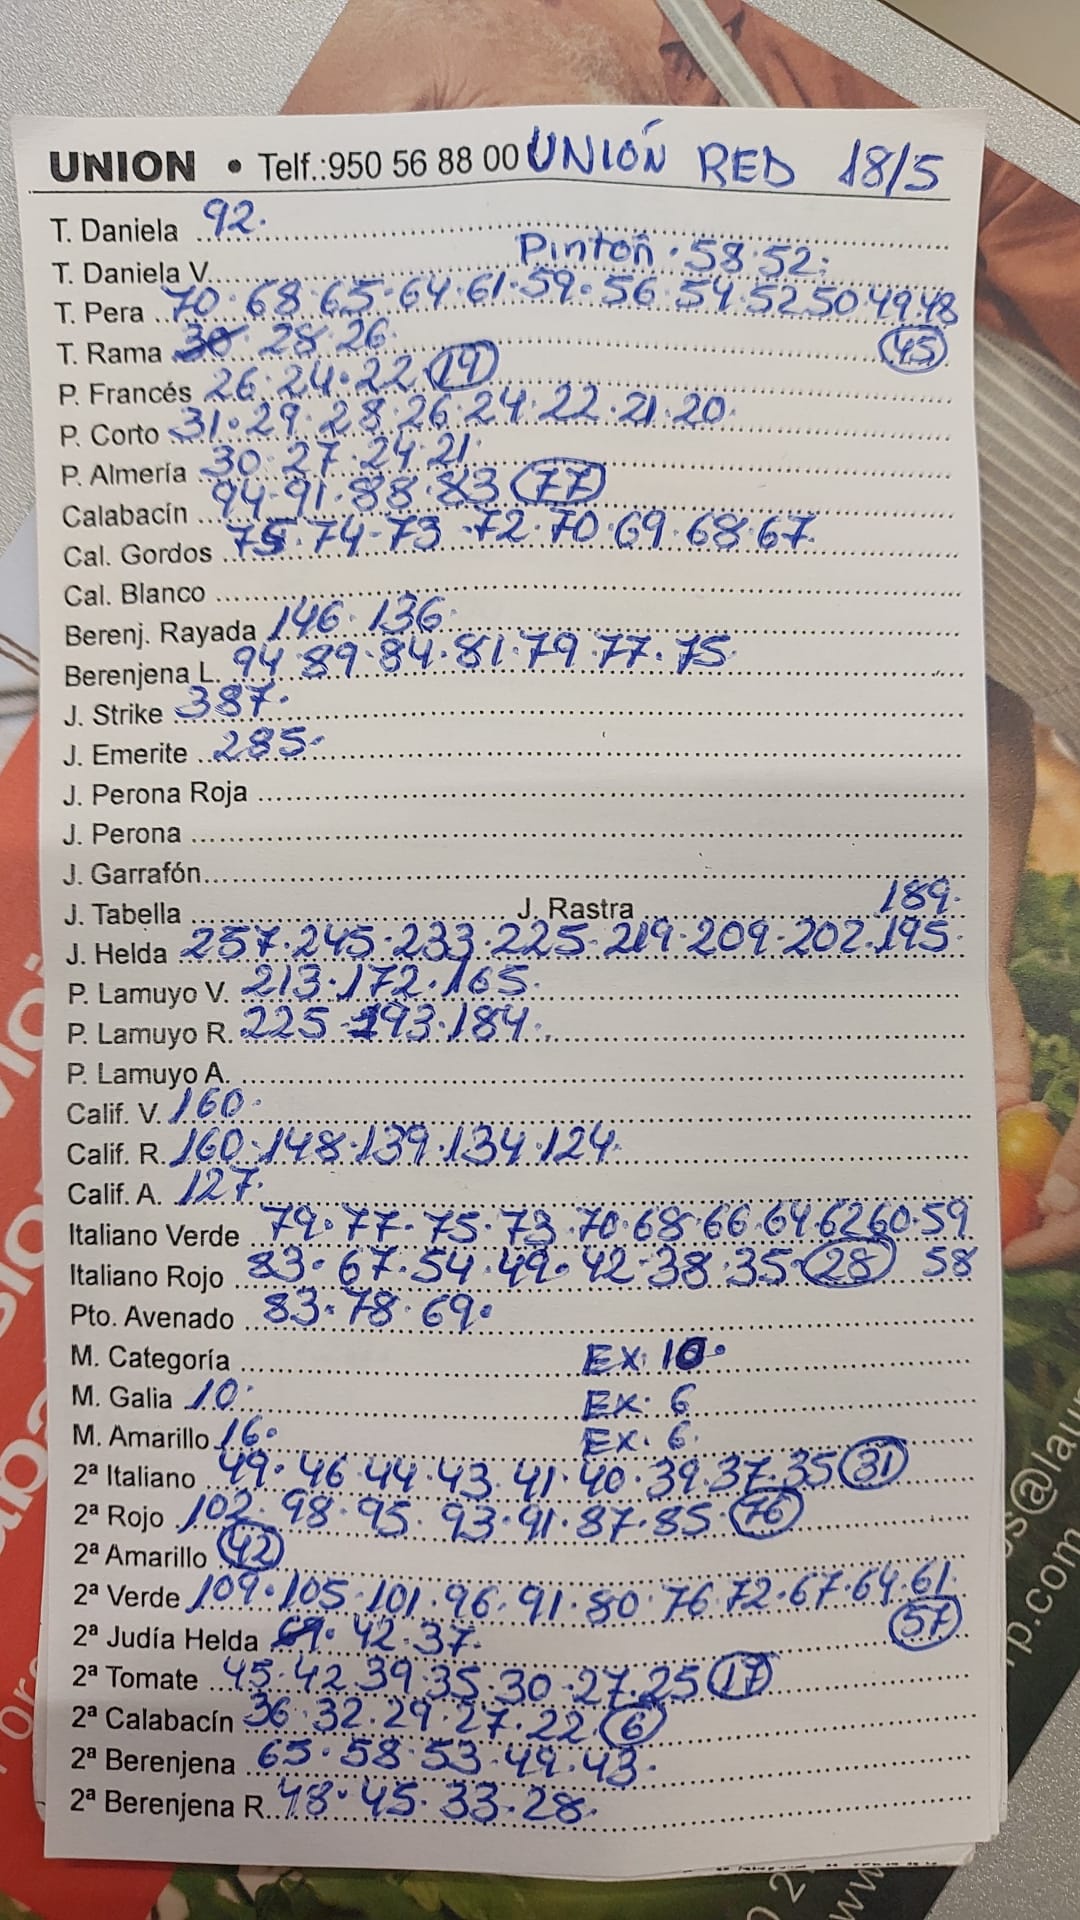 UNION • Telf.:950 56 88 00 UNIÓN RED 18/5
T. Daniela 92.
T. Daniela V. Pinton · 58·52.
T. Pera 70·68·65·64·61·59·56·54·52·50·49·48
T. Rama 30 28·26. (45)
P. Francés 26·24·22 (19)
P. Corto 31·29·28·26·24·22·21·20.
P. Almería 30·27·24·21.
Calabacín 94·91·88·83 (77)
Cal. Gordos 75·74·73·72·70·69·68·67.
Cal. Blanco
Berenj. Rayada 146·136.
Berenjena L. 94·89·84·81·79·77·75.
J. Strike 387.
J. Emerite 285.
J. Perona Roja
J. Perona
J. Garrafón
J. Tabella J. Rastra 189.
J. Helda 257·245·233·225·219·209·202·195.
P. Lamuyo V. 213·172·165.
P. Lamuyo R. 225·193·184.
P. Lamuyo A.
Calif. V. 160.
Calif. R. 160·148·139·134·124.
Calif. A. 127.
Italiano Verde 79·77·75·73·70·68·66·64·62·60·59
Italiano Rojo 83·67·54·49·42·38·35·(28) 58
Pto. Avenado 83·78·69.
M. Categoría EX. 10.
M. Galia 10. EX. 6
M. Amarillo 16. EX. 6.
2ª Italiano 49·46·44·43·41·40·39·37·35 (31)
2ª Rojo 102·98·95·93·91·87·85·(76)
2ª Amarillo (42)
2ª Verde 109·105·101·96·91·80·76·72·67·64·61.
2ª Judía Helda 42·37. (57)
2ª Tomate 45·42·39·35·30·27·25 (17)
2ª Calabacín 36·32·29·27·22·(6)
2ª Berenjena 65·58·53·49·43.
2ª Berenjena R. 48·45·33·28.